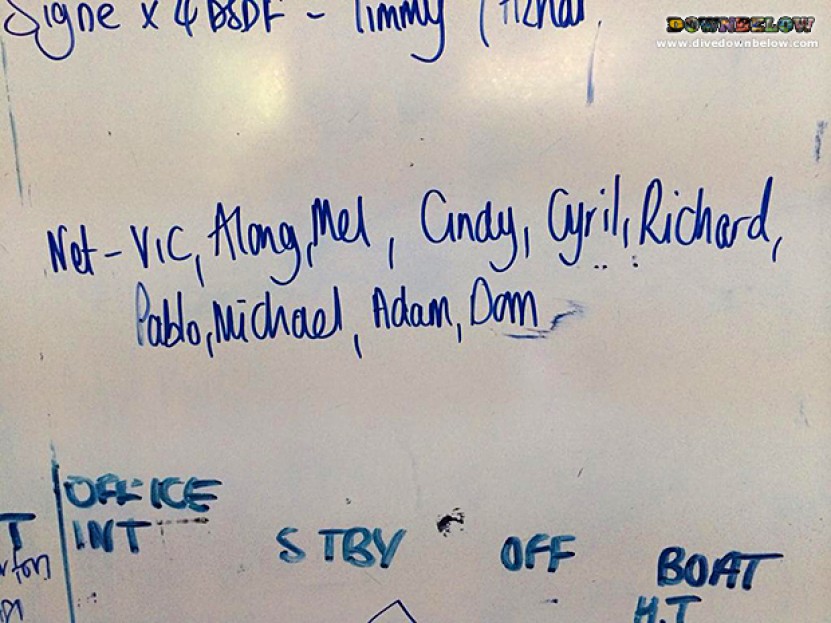 Signe x 4 DSDF - Timmy / Azhar
DOWNBELOW
www.divedownbelow.com
Net - VIC, Along, Mel, Cindy, Cyril, Richard,
Pablo, Michael, Adam, Dom
OFFICE
INT
STBY
OFF
BOAT
H.T